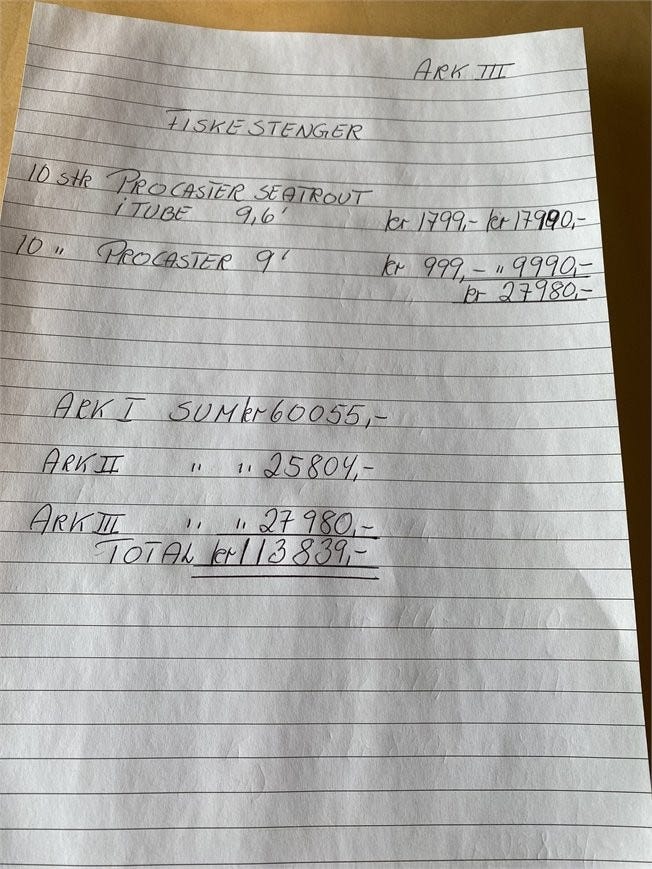 ARK III
FISKESTENGER
10 stk PROCASTER SEATROUT
i TUBE 9,6' kr 1799,- kr 17990,-
10 " PROCASTER 9' kr 999,- " 9990,-
kr 27980,-
ARK I SUM kr 60055,-
ARK II " " 25804,-
ARK III " " 27980,-
TOTAL kr 113839,-